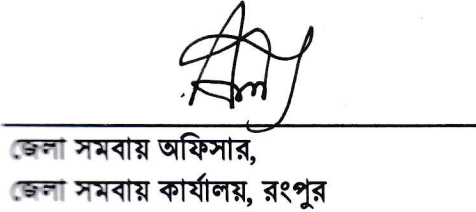 জেলা সমবায় অফিসার,
জেলা সমবায় কার্যালয়, রংপুর